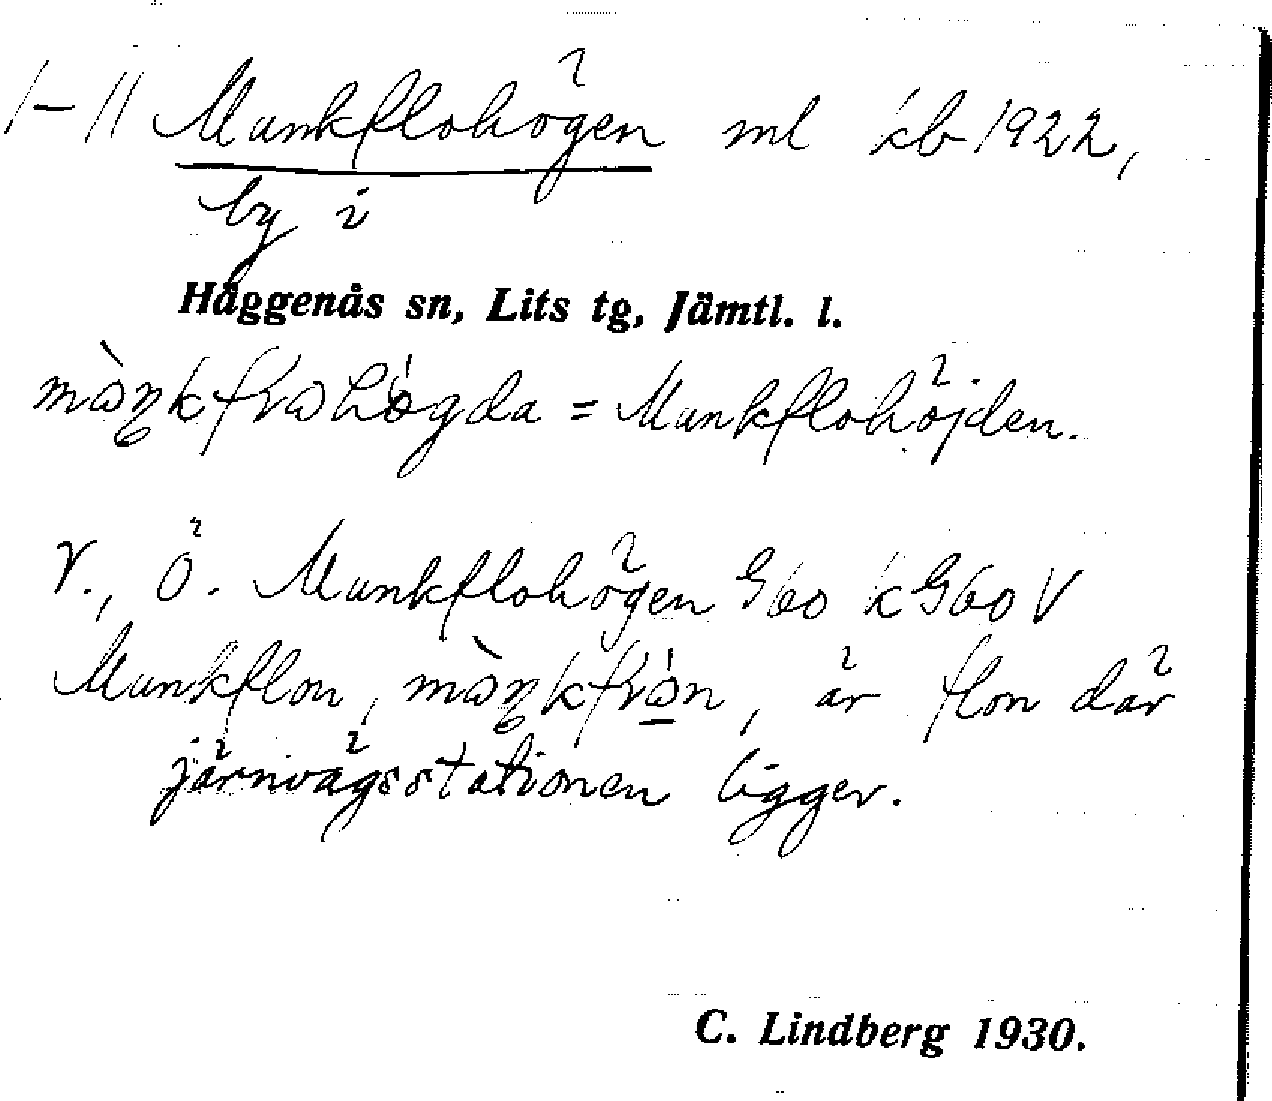 1-11 Munkflohögen ml kb 1922,
by i
Häggenås sn, Lits tg, Jämtl. l.
= Munkflohöjden.
V., Ö. Munkflohögen G60 k G60V
Munkflon, är flon där
järnvägsstationen ligger.
C. Lindberg 1930.